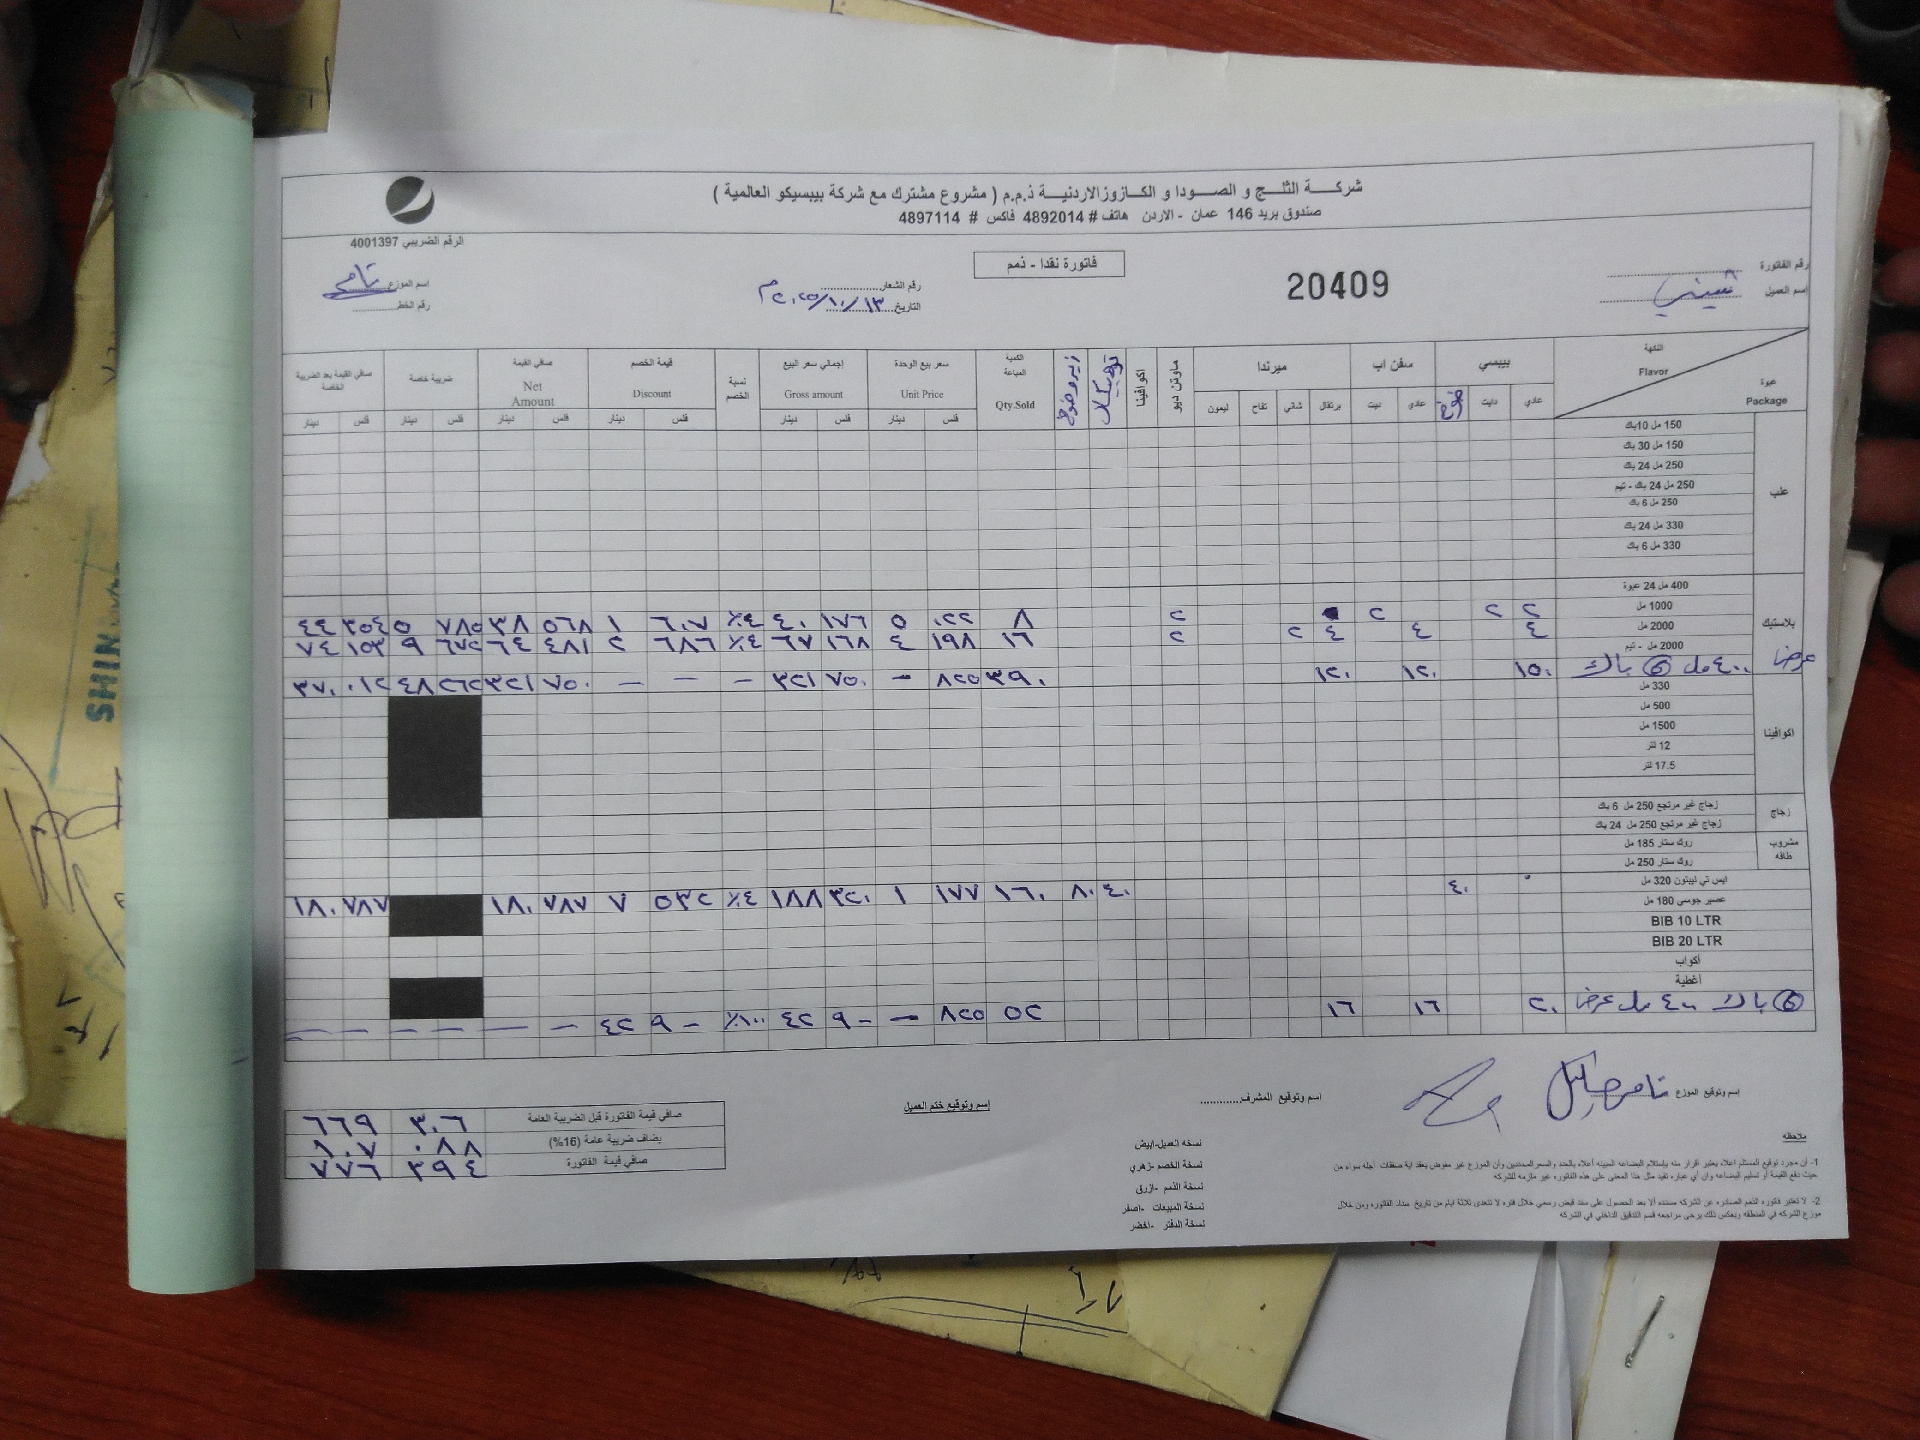 شركــة الثلــج و الصــودا و الكــازوز الاردنيــة ذ.م.م ( مشروع مشترك مع شركة بيبسيكو العالمية )
صندوق بريد 146 عمان - الاردن هاتف # 4892014 فاكس # 4897114
الرقم الضريبي 4001397
فاتورة نقدا - ذمم
رقم الفاتورة
20409
اسم العميل
رقم الشعار
التاريخ ١٣/١٠/٢٠٢٥م
اسم الموزع
رقم الخط
النكهة Flavor
عبوة Package
بيبسي سفن اب ميرندا ماونتن ديو اكوافينا
عادي دايت عادي ديت برتقال شاني تفاح ليمون
الكمية المباعة Qty.Sold
سعر بيع الوحدة Unit Price
إجمالي سعر البيع Gross amount
نسبة الخصم
قيمة الخصم Discount
صافي القيمة Net Amount
ضريبة خاصة
صافي القيمة بعد الضريبة الخاصة
فلس دينار فلس دينار فلس دينار فلس دينار فلس دينار فلس دينار
علب
150 مل 10 باك
150 مل 30 باك
250 مل 24 باك
250 مل 24 باك - تيم
250 مل 6 باك
330 مل 24 باك
330 مل 6 باك
بلاستيك
400 مل 24 عبوة
1000 مل ٢ ٢ ٢ ٢ ٨ ٠٢٢ ٥ ١٧٦ ٤٠ ٤٪ ٦٠٧ ١ ٥٦٨ ٣٨ ٧٨٥ ٥ ٣٥٤ ٤٤
2000 مل ٤ ٤ ٤ ٢ ٢ ١٦ ١٩٨ ٤ ١٦٨ ٦٧ ٤٪ ٦٨٦ ٢ ٤٨١ ٦٤ ٦٧٢ ٩ ١٥٣ ٧٤
2000 مل - تيم
عرض ٤٠٠ مل 6 باك ١٥٠ ١٢٠ ١٢٠ ٣٩٠ ٨٢٥ - ٧٥٠ ٣٢١ - - - ٧٥٠ ٣٢١ ٢٦٢ ٤٨ ٠١٢ ٣٧٠
اكوافينا
330 مل
500 مل
1500 مل
12 لتر
17.5 لتر
زجاج
زجاج غير مرتجع 250 مل 6 باك
زجاج غير مرتجع 250 مل 24 باك
مشروب طاقه
روك ستار 185 مل
روك ستار 250 مل
ايس تي ليبتون 320 مل ٤٠ ٤٠ ٨٠ ١٦٠ ١٧٧ ١ ٣٢٠ ١٨٨ ٤٪ ٥٣٢ ٧ ٧٨٧ ١٨٠ ٧٨٧ ١٨٠
عصير جوسي 180 مل
BIB 10 LTR
BIB 20 LTR
أكواب
أغطية
6 باك ٤٠٠ مل عرض ٢٠ ١٦ ١٦ ٥٢ ٨٢٥ - ٩٠٠ ٤٢ ١٠٠٪ ٩٠٠ ٤٢ - - - - - -
اسم وتوقيع الموزع
اسم وتوقيع المشرف
اسم وتوقيع ختم العميل
صافي قيمة الفاتورة قبل الضريبة العامة ٣٠٦ ٦٦٩
يضاف ضريبة عامة (16%) ٠٨٨ ١٠٧
صافي قيمة الفاتورة ٣٩٤ ٧٧٦
نسخه العميل-ابيض
نسخة الخصم -زهري
نسخة الذمم -ازرق
نسخة المبيعات -اصفر
نسخة الدفتر -اخضر
ملاحظه
1- أن مجرد توقيع المستلم اعلاه يعتبر اقرار منه بإستلام البضاعه المبينه أعلاه بالعدد والسعر المحددين وأن الموزع غير مفوض بعقد اية صفقات اجله سواء من
حيث دفع القيمة أو تسليم البضاعه وان أي عباره تفيد مثل هذا المعنى على هذه الفاتوره غير ملزمه للشركه
2- لا تعتبر فاتوره الذمم الصادره عن الشركه مسدده ألا بعد الحصول على سند قبض رسمي خلال فتره لا تتعدى ثلاثة ايام من تاريخ سداد الفاتوره ومن خلال
موزع الشركه في المنطقه وبعكس ذلك يرجى مراجعه قسم التدقيق الداخلي في الشركه